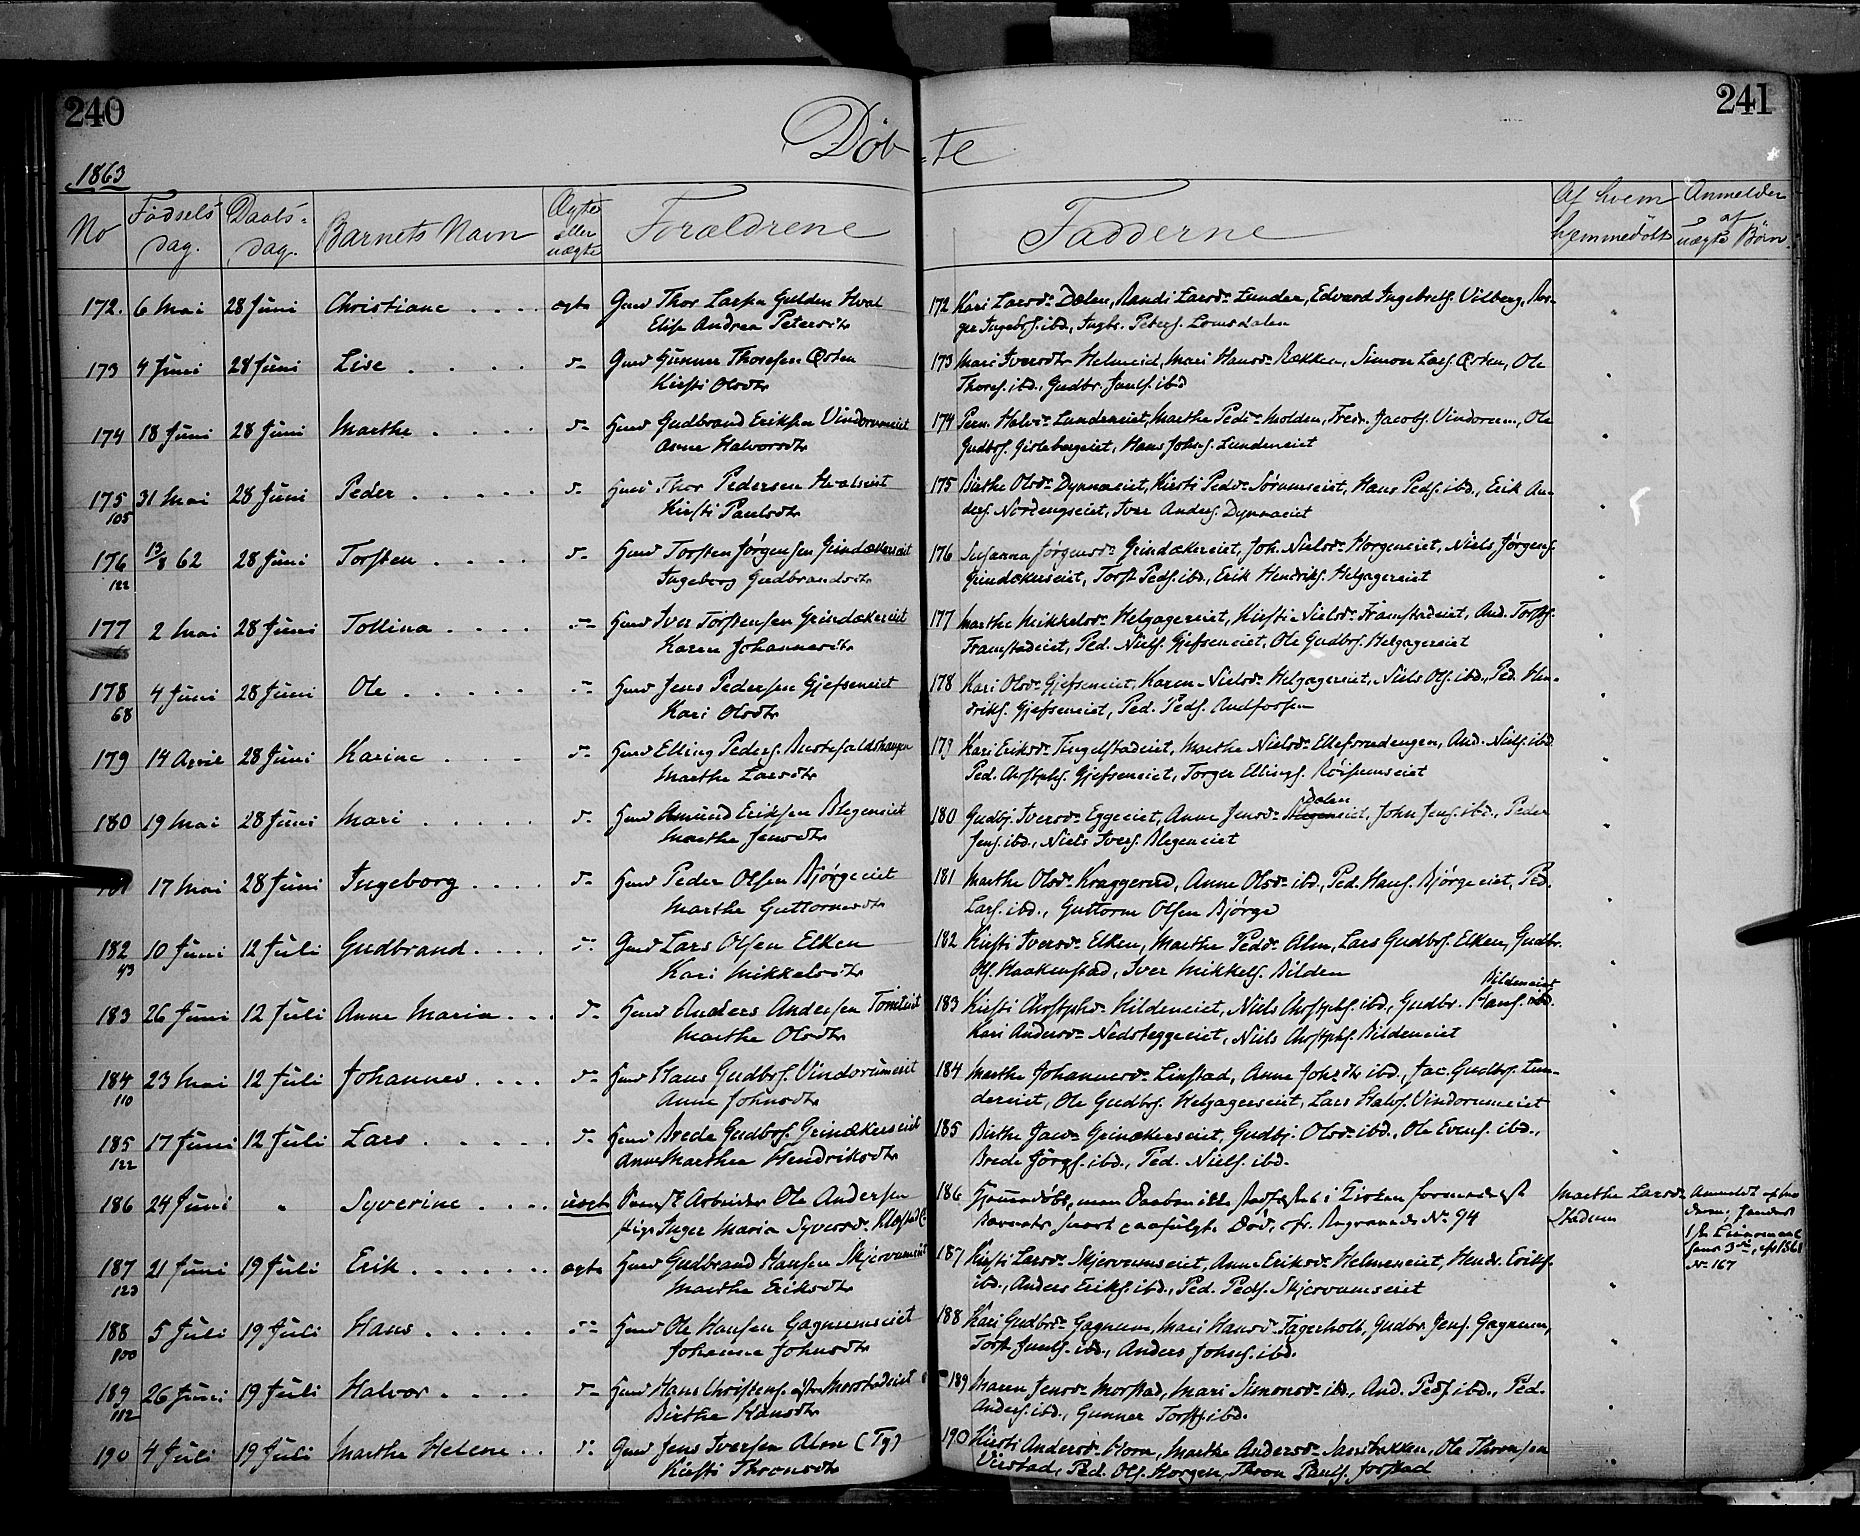 240
241
Døb-te
1863
No
Fødsels
dag.
Daabs-
dag.
Barnets Navn
Ægte
eller
uægte
Forældrene
Fadderne
Af hvem
hjemmedöbt
Anmelder
af
uægte Børn.
172. 6 Mai 28 Juni Christiane .... ægte Gmd Thor Larsen Gulden Hval
Elise Andrea Petersdtr
172 Kari Larsd. Dælen, Randi Larsd. Lunder, Edvard Ingebrets. Vilberg,
Ingebrs. ibd., Ingbr. Peters. Lomsdalen
173 4 Juni 28 Juni Lise .... d- Gmd Gunner Thoresen Østen
Kirsti Olsdtr
173 Mari Iversdtr Helmeid, Mari Hansd. Rækken, Simon Lars. Østen, Ole
Thores. ibd., Gudbr. Pauls. ibd
174 18 Juni 28 Juni Marthe .... d- Hmd Gudbrand Eriksen Vindorumeiet
Anne Halvorsdtr
174 Pern. Halvd. Lundereiet, Marthe Pedd. Molden, Fredr. Jacobs. Vindorum, Ole
Gudbrs. Gislebergeiet, Hans Johs. Lundereiet
175 31 Mai 28 Juni Peder ..... d- Hmd Thor Pedersen Hvalseiet
105
Kirsti Paulsdtr
175 Birthe Olsd. Dynnaeiet, Kirsti Pedd. Sørumseiet, Hans Peds. ibd., Erik An-
ders. Nordengseiet, Iver Anders. Dynnaeiet
176 13/8 62 28 Juni Torsten .... d- Hmd Torsten Jørgensen Grindakereiet
122
Ingeborg Gudbrandsdtr
176 Susanna Jørgensd. Grindakereiet, Joh. Nielsd. Horgeneiet, Niels Jørgens.
Grindakerseiet, Torst. Peds. ibd., Erik Hendriks. Helgagereiet
177 2 Mai 28 Juni Tolline .... d- Hmd Iver Torstensen Grindakereiet
Karen Johannesdtr
177 Marthe Mikkelsd. Helgagereiet, Kirsti Nielsd. Framstadeiet, And. Torsts.
Framstadeiet, Ped. Niels. Gjefseneiet, Ole Gudbrs. Helgagereiet
178 4 Juni 28 Juni Ole ..... d- Hmd Jens Pedersen Gjefseneiet
68
Kari Olsdtr
178 Kari Olsd. Gjefseneiet, Karen Nielsd. Helgagereiet, Niels Ols. ibd., Ped. Hen-
driks. Gjefseneiet, Ped. Peds. Rudfossen
179 14 April 28 Juni Karine ... d- Hmd Elling Peders.
Marthe Larsdtr
179 Kari Eriksd. Tingelstadeiet, Marthe Nielsd. Ellefsrudengen, And. Niels. ibd
Ped. Chrstphs. Gjefseneiet, Torger Ellings. Röisumseiet
180 19 Mai 28 Juni Mari ..... d- Hmd Amund Eriksen Blegeneiet
Marthe Jensdtr
Dalen
180 Gudbj. Iversd. Eggeeiet, Anne Jensd. Blegeneiet, John Jens. ibd., Peder
Jens. ibd., Niels Ivers. Blegeneiet
181 17 Mai 28 Juni Ingeborg .... d- Hmd Peder Olsen Bjørgeeiet
Marthe Guttormsdtr
181 Marthe Olsd. Kraggerud, Anne Olsd. ibd., Ped. Hans. Bjørgeeiet, Ped.
Lars. ibd., Guttorm Olsen Bjørge
182 10 Juni 12 Juli Gudbrand .... d- Gmd Lars Olsen Elken
43
Kari Mikkelsdtr
182 Kirsti Iversd. Elken, Marthe Pedd. Alm, Lars Gudbrs. Elken, Gudbr.
Ols. Haakenstad, Iver Mikkels. Bilden
Bildeneiet
183 26 Juni 12 Juli Anne Maria ... d- Hmd Anders Andersen Tömteeiet
Marthe Olsdtr
183 Kirsti Chrstphd. Hildeneiet, Niels Chrstphs. ibd., Gudbr. Hans. ibd.
Kari Andersd. Nedreeggeeiet, Niels Chrstphs. Bildeneiet
184 23 Mai 12 Juli Johannes .... d- Hmd Hans Gudbrs. Vindorumeiet
110
Anne Johnsdtr
184 Marthe Johannesd. Linstad, Anne Johsdtr ibd., Jac. Gudbrs. Lun-
dereiet, Ole Gudbrs. Helgagerseiet, Lars Halvs. Vindorumeiet
185 17 Juni 12 Juli Lars ..... d- Hmd Brede Gudbrs. Grinakerseiet
122
Anne Marthea Hendriksdtr
185 Birthe Jacd. Grinakerseiet, Gudbj. Olsd. ibd., Ole Evens. ibd.,
Brede Jörgs. ibd., Ped. Niels. ibd.
186 24 Juni " Syverine .... uægte Ungk. Arbeider Ole Andersen
Pige Inger Maria Syversd. Klæstad
186 Hjemmedöbt, men Daaben ikke stadfæstet i Kirken formedelst
Barnets snart paafulgte Död, cfr. Begravede No 94
Marthe Larsd.
Stadum
No 167
187 21 Juni 19 Juli Erik ....... ægte Hmd Gudbrand Hansen Skjervumeiet
123
Marthe Eriksdtr
187 Kirsti Larsd. Skjervumseiet, Anne Eriksd. Helmeneiet, Hendr. Eriks.
ibd., Anders Eriks. ibd., Ped. Peds. Skjervumseiet
188 5 Juli 19 Juli Hans ..... d- Hmd Ole Hansen Gagnumseiet
100
Johanne Johnsdtr
188 Kari Gudbrd. Gagnum, Mari Hansd. Fagerholt, Gudbr. Jens. Gagnum,
Torst. Pauls. ibd., Anders Johs. ibd.
189 26 Juni 19 Juli Halvor .... d- Hmd Hans Christens. Morstadeiet
112
Birthe Hansdtr
189 Maren Jensd. Morstad, Mari Simonsd. ibd., And. Peds. ibd., Ped.
Anders. ibd., Gunner Torsts. ibd.
190 4 Juli 19 Juli Marthe Helene .. d- Gmd Jens Iversen Alm (Ty)
Kirsti Thronsdtr
190 Kirsti Andersd. Horn, Marthe Andersd. Ole Thronsen
Virstad, Ped. Ols. Horgen, Thron Pauls. Jorstad